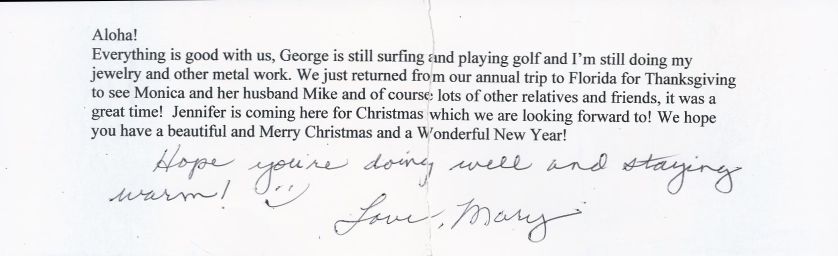 Aloha!
Everything is good with us, George is still surfing and playing golf and I'm still doing my
jewelry and other metal work. We just returned from our annual trip to Florida for Thanksgiving
to see Monica and her husband Mike and of course lots of other relatives and friends, it was a
great time! Jennifer is coming here for Christmas which we are looking forward to! We hope
you have a beautiful and Merry Christmas and a Wonderful New Year!
Hope you're doing well and staying
warm!
Love, Mary